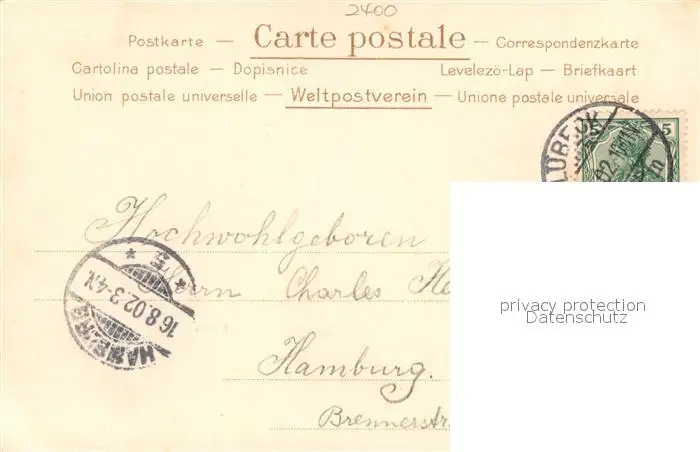 2400
Postkarte — Carte postale — Correspondenzkarte
Cartolina postale — Dopisnice Levelező-Lap — Briefkaart
Union postale universelle — Weltpostverein — Unione postale universale
LÜBECK
5
Hochwohlgeboren
Herrn Charles He
HAMBURG
16.8.02.3-4N.
privacy protection
Datenschutz
Hamburg.
Brennerstr.